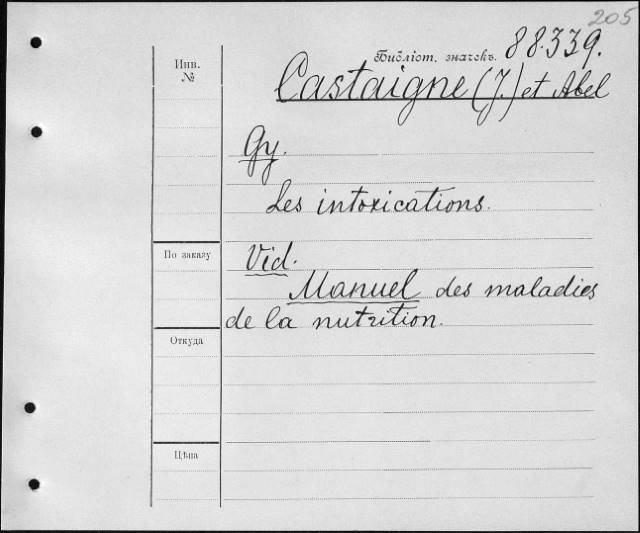 205
Инв.
№
Библіот. значекъ. 88.339.
Castaigne (J.) et Abel
Gy.
Les intoxications.
По заказу
Vid.
Manuel des maladies
de la nutrition.
Откуда
Цѣна